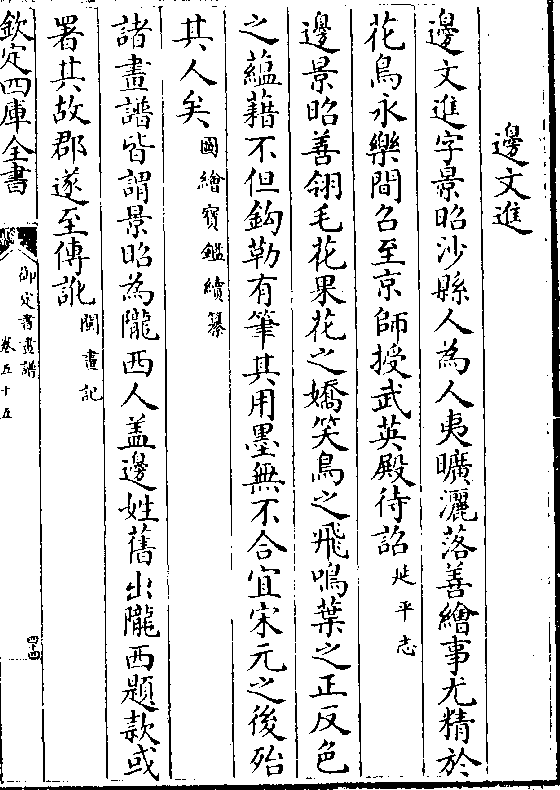 邊文進
邊文進字景昭沙縣人為人夷曠灑落善繪事尤精於
花鳥永樂間召至京師授武英殿待詔延平志
邊景昭善翎毛花果花之嬌笑鳥之飛鳴葉之正反色
之蘊藉不但鈎勒有筆其用墨無不合宜宋元之後殆
其人矣圖繪寶鑑續纂
諸畫譜皆謂景昭為隴西人盖邊姓舊出隴西題款或
署其故郡遂至傳訛閩畫記
欽定四庫全書
御定書畫譜
卷五十五
四十四